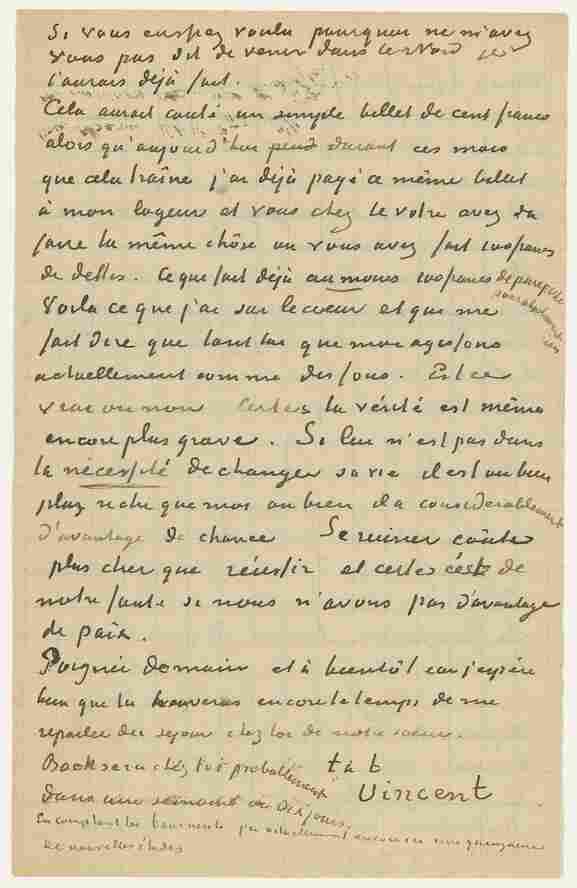 Si vous eussiez voulu pourquoi ne m'avez
vous pas dit de venir dans le Nord je
l'aurais déjà fait.
Cela aurait couté un simple billet de cent francs
alors qu'aujourd'hui pendt durant ces mois
que cela traîne j'ai déjà payé ce même billet
à mon logeur et vous chez le votre avez du
faire la même chôse ou vous avez fait 100 francs
de dettes. Ce que fait déjà au moins 100 francs de
Voila ce que j'ai sur le coeur et que me
fait dire que tant lui que moi agissons
actuellement comme des fous. Est ce
vrai ou non Certes la vérité est même
encore plus grave. Si lui n'est pas dans
la nécessité de changer sa vie il est ou bien
plus riche que moi ou bien il a considerablement
d'avantage de chance Se ruiner coûte
plus cher que réussir et certes c'est de
notre faute si nous n'avons pas d'avantage
de paix.
Poignée de main et à bientôt car j'espère
bien que tu trouveras encore le temps de me
reparler du sejour chez toi de notre soeur.
Bock sera chez toi probablement t à t
dans une semaine ou dix jours. Vincent
En comptant les j'ai actuellement encore une quinzaine
de nouvelles études